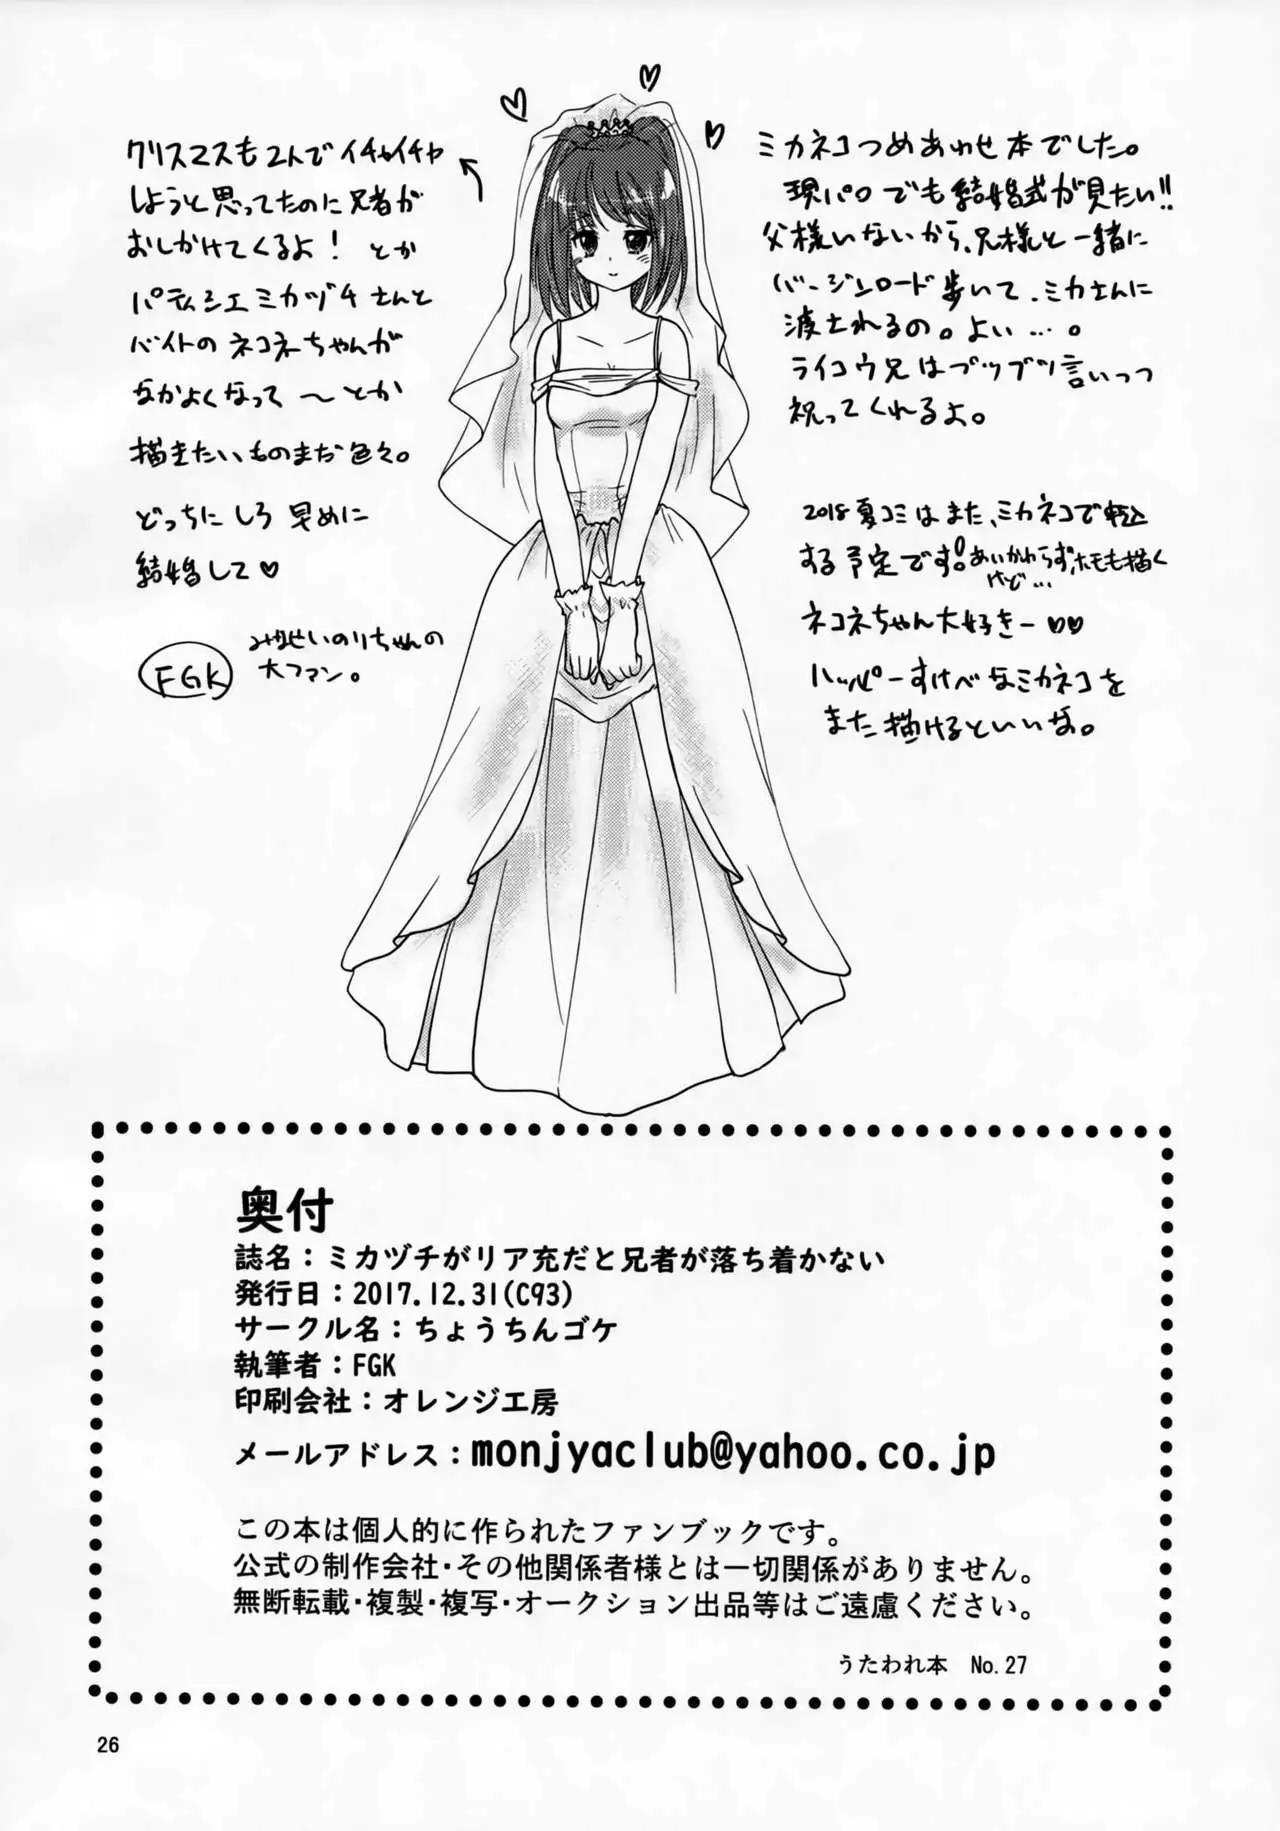 ミカネコつめあわせ本でした。
現パロでも結婚式が見たい!!
父様いないから、兄様と一緒に
バージンロード歩いて、ミカさんに
渡されるの。よい…。
ライコウ兄はブツブツ言いつつ
祝ってくれるよ。
2018夏コミはまた、ミカネコで申込
する予定です!あいかわらず、ホモも描く
けど…
ネコネちゃん大好きー♡♡
ハッピーすけべなミカネコを
また描けるといいな。
クリスマスも2人でイチャイチャ
しようと思ってたのに兄者が
おしかけてくるよ!とか
パティシエミカヅチさんと
バイトのネコネちゃんが
なかよくなって〜とか
描きたいものまだ色々。
どっちにしろ早めに
結婚して♡
FGK
みなせいのりちゃんの
大ファン。
奥付
誌名：ミカヅチがリア充だと兄者が落ち着かない
発行日：2017.12.31(C93)
サークル名：ちょうちんゴケ
執筆者：FGK
印刷会社：オレンジ工房
メールアドレス：monjyaclub@yahoo.co.jp
この本は個人的に作られたファンブックです。
公式の制作会社・その他関係者様とは一切関係がありません。
無断転載・複製・複写・オークション出品等はご遠慮ください。
うたわれ本　No.27
26